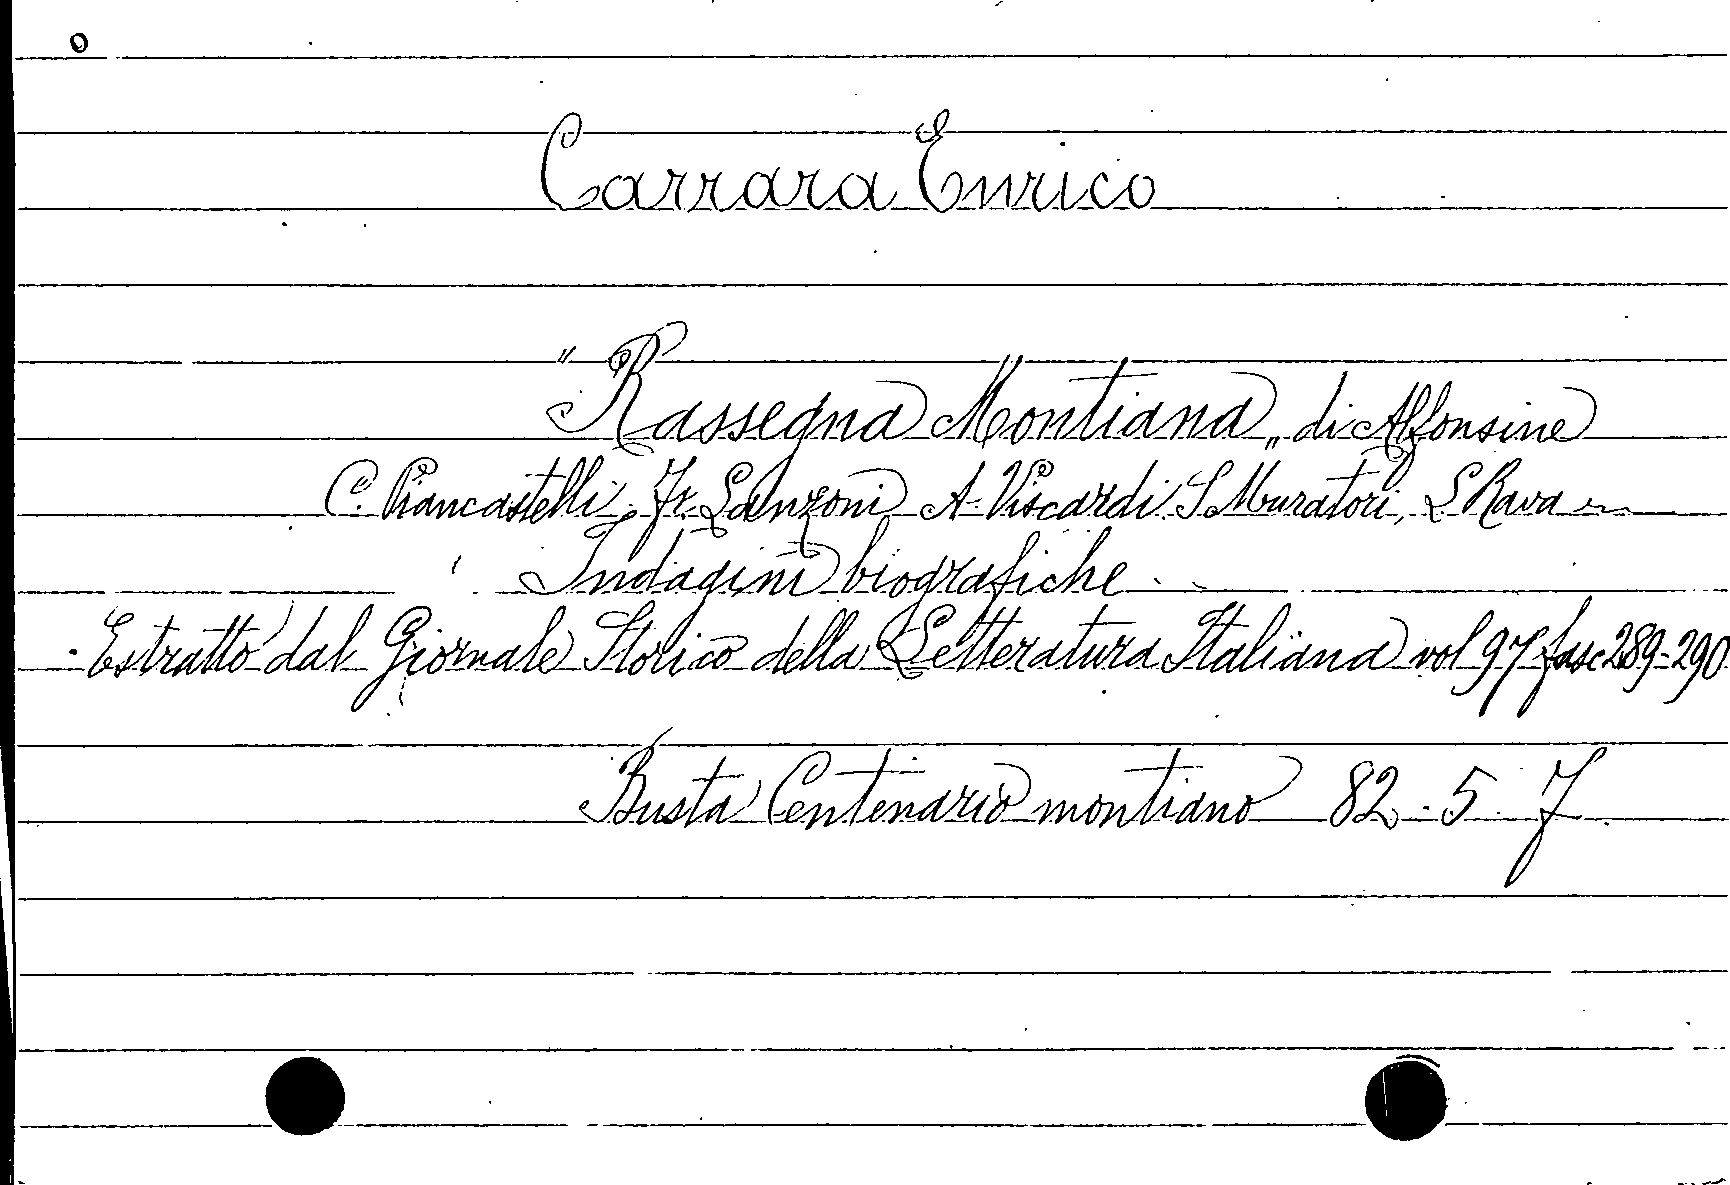 Carrara Enrico
"Rassegna Montiana„ di Alfonsine
C. Piancastelli, Fr. Lanzoni, A. Viscardi, S. Muratori, L. Rava
Indagini biografiche
Estratto dal Giornale Storico della Letteratura Italiana vol 97 fasc 289-290
Busta Centenario montiano 82.5.7